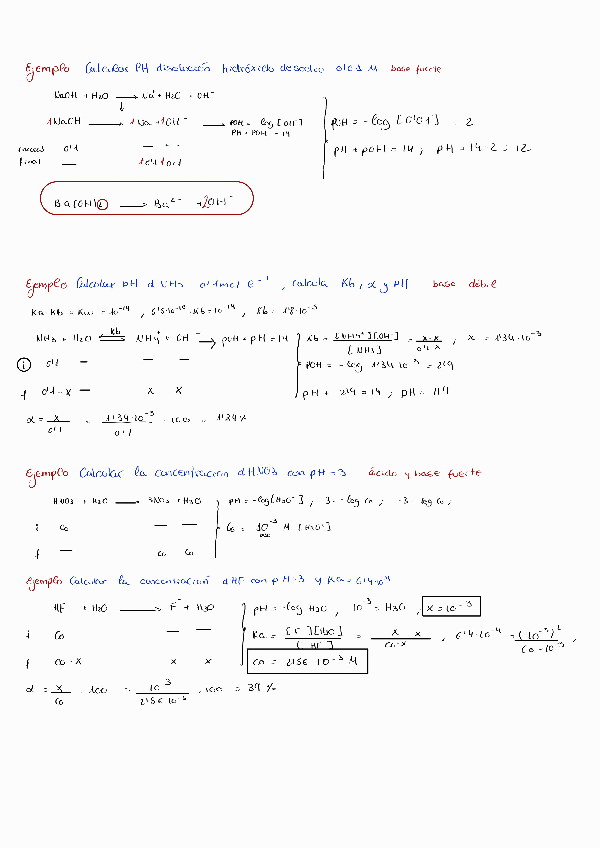 Ejemplo Calcular PH disolución hidróxido de sodio 0'1 M base fuerte
NaOH + H2O → Na+ + H2O + OH-
1NaOH → 1Na + 1OH- → pOH = -log [OH-]
PH + POH = 14
0'1 — —
final — 0'1 0'1
pOH = -log [0'01] = 2
pH + pOH = 14 ; pH = 14-2 = 12
Ba(OH)2 → Ba2+ + 2OH-
Ejemplo Calcular pH d NH3 0'1 mol l-1 , calcula Kb, α y pH base débil
Ka Kb = Kw = 10-14 , 5'6·10-10 · Kb = 10-14 , Kb = 1'8·10-5
NH3 + H2O ⇌ Kb NH4+ + OH- → pOH + pH = 14
i 0'1 — — —
f 0'1-x — x x
Kb = [NH4+][OH-] / [NH3] = x·x / 0'1-x , x = 1'34·10-3
pOH = -log 1'34·10-3 = 2'9
pH + 2'9 = 14 ; pH = 11'1
α = x / 0'1 = 1'34·10-3 / 0'1 · 100 = 1'34 %
Ejemplo Calcular la concentración d HNO3 con pH = 3 ácido y base fuerte
HNO3 + H2O → NO3 + H3O
i co — —
f — co co
pH = -log[H3O+] ; 3 = -log co ; -3 = log co ;
Co = 10-3 M [H3O+]
Ejemplo Calcular la concentración d HF con pH = 3 y Ka = 6'4·10-4
HF + H2O → F- + H3O
i Co — —
f co-x x x
pH = -log H3O , 10-3 = H3O , x = 10-3
Ka = [F-][H3O] / [HF] = x x / co-x , 6'4·10-4 = (10-3)2 / Co-10-3 ,
co = 2'56·10-3 M
α = x / co · 100 = 10-3 / 2'56·10-3 · 100 = 39 %